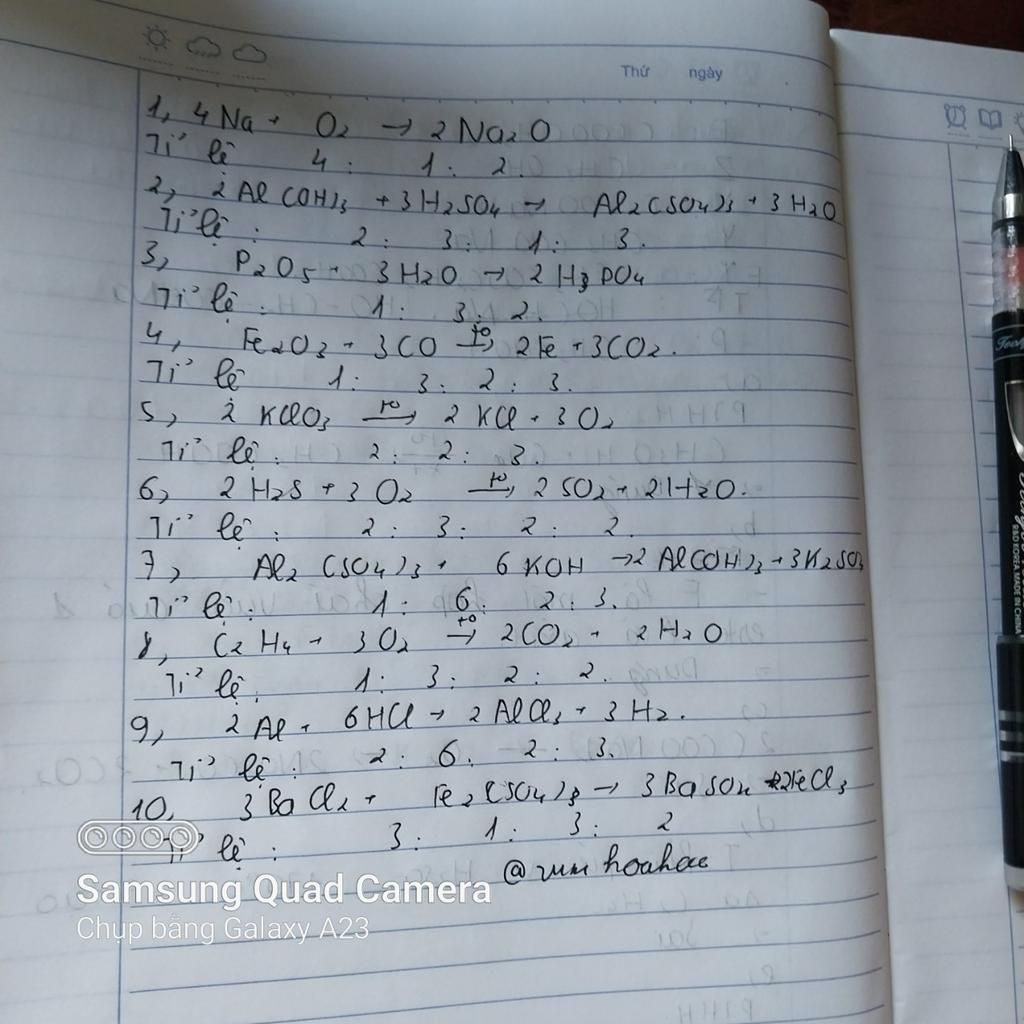 Thứ ngày
1, 4 Na + O2 → 2 Na2O
Tỉ lệ 4 : 1 : 2.
2, 2 Al(OH)3 + 3 H2SO4 → Al2(SO4)3 + 3 H2O
Tỉ lệ : 2 : 3 : 1 : 3.
3, P2O5 + 3 H2O → 2 H3PO4
Tỉ lệ : 1 : 3 : 2.
4, Fe2O3 + 3 CO t° → 2 Fe + 3 CO2.
Tỉ lệ 1 : 3 : 2 : 3.
5, 2 KClO3 t° → 2 KCl + 3 O2
Tỉ lệ : 2 : 2 : 3.
6, 2 H2S + 3 O2 t° → 2 SO2 + 2 H2O.
Tỉ lệ : 2 : 3 : 2 : 2.
7, Al2(SO4)3 + 6 KOH → 2 Al(OH)3 + 3 K2SO4
Tỉ lệ : 1 : 6 : 2 : 3.
8, C2H4 + 3 O2 t° → 2 CO2 + 2 H2O
Tỉ lệ : 1 : 3 : 2 : 2.
9, 2 Al + 6 HCl → 2 AlCl3 + 3 H2.
Tỉ lệ : 2 : 6 : 2 : 3.
10, 3 BaCl2 + Fe2(SO4)3 → 3 BaSO4 + 2 FeCl3
Tỉ lệ : 3 : 1 : 3 : 2
hoahoc
Samsung Quad Camera
Chụp bằng Galaxy A23
MADE IN CHINA